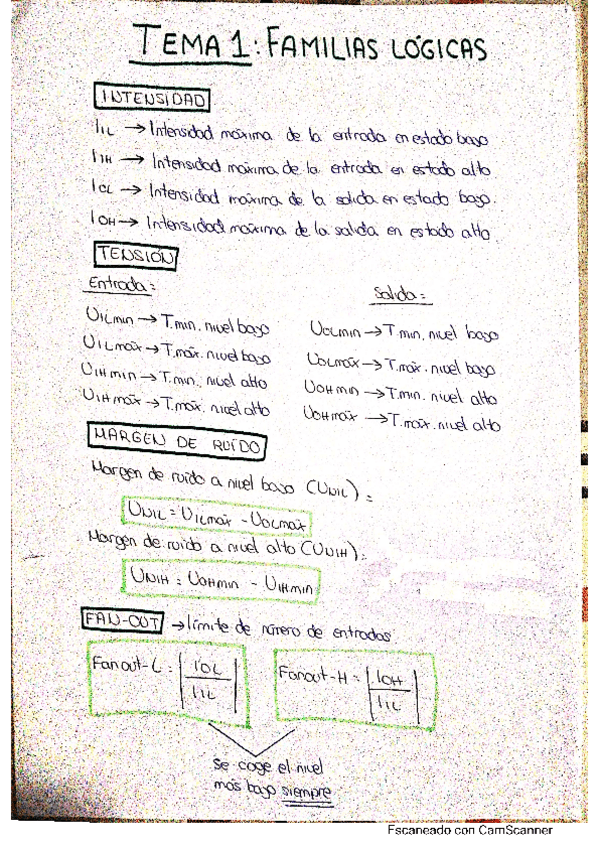 TEMA 1: FAMILIAS LÓGICAS
INTENSIDAD
IIL → Intensidad máxima de la entrada en estado bajo
IIH → Intensidad máxima de la entrada en estado alto
IOL → Intensidad máxima de la salida en estado bajo.
IOH → Intensidad máxima de la salida en estado alto.
TENSIÓN
Entrada:
UILmin → T.min. nivel bajo
UILmáx → T.máx. nivel bajo
UIHmin → T.min. nivel alto
UIHmáx → T.máx. nivel alto
Salida:
UOLmin → T min. nivel bajo
UOLmáx → T.máx. nivel bajo
UOHmin → T.min. nivel alto
UOHmáx → T.máx. nivel alto
MARGEN DE RUÍDO
Margen de ruído a nivel bajo (UNIL):
UNIL = UILmáx - UOLmáx
Margen de ruído a nivel alto (UNIH):
UNIH = UOHmin - UIHmin
FAN-OUT → límite de número de entradas.
Fanout-L = |IOL / IIL|
Fanout-H = |IOH / IIL|
Se coge el nivel
más bajo siempre
Escaneado con CamScanner